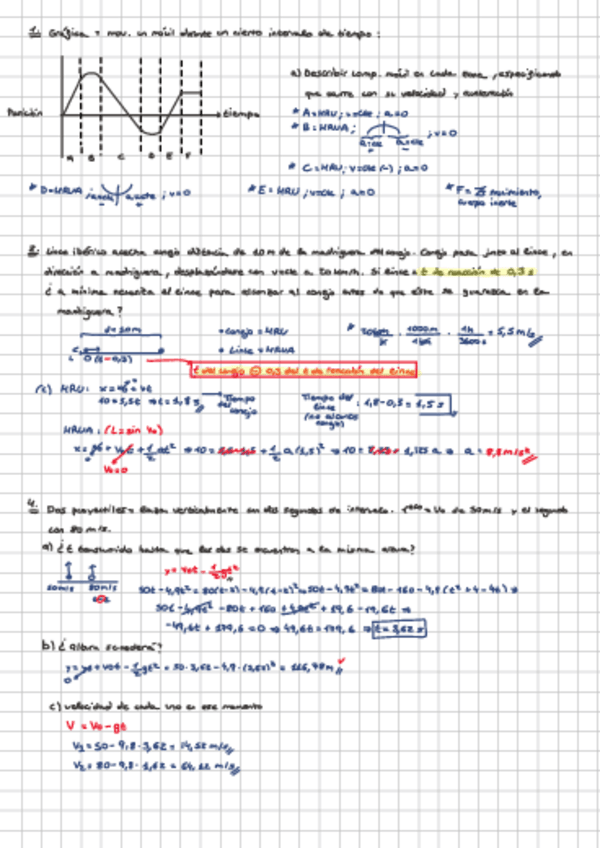 1. Gráfica = mov. un móvil durante un cierto intervalo de tiempo:
a) Describir comp. móvil en cada zona, especificando
que ocurre con su velocidad y aceleración
Posición
tiempo
A B C D E F
* A = MRU; v=cte; a=0
* B = MRUA; ; v=0
* C = MRU; v=cte (-); a=0
* D = MRUA ; v=0
* E = MRU; v=cte; a=0
* F = movimiento,
cuerpo inerte
3. Lince ibérico acecha conejo distancia de 10m de la madriguera del conejo. Conejo pasa junto al lince, en
dirección a madriguera, desplazándose con v=cte a 20km/h. Si lince = t de reacción de 0,3 s
¿a mínima necesita el lince para alcanzar al conejo antes de que éste se guarezca en la
madriguera?
d = 10m
• Conejo = MRU
• Lince = MRUA
* 20km/h · 1000m/1km · 1h/3600s = 5,5 m/s
t del conejo 0,3 del t de reacción del lince
(C) MRU: x = x0 + vt
10 = 5,5t ⇒ t = 1,8 s
Tiempo del conejo
Tiempo del lince
: 1,8-0,3 = 1,5 s
MRUA: (L = sin V0)
V0=0
4. Dos proyectiles = lanzan verticalmente en dos segundos de intervalo. 1º = V0 de 50m/s y el segundo
con 80 m/s.
a) ¿t transcurrido hasta que los dos se encuentren a la misma altura?
y = v0t - 1/2 gt²
50m/s 80m/s
50t - 4,9t² = 80(t-2) - 4,9(t-2)² ⇒ 50t - 4,9t² = 80t - 160 - 4,9(t² + 4 - 4t) ⇒
50t - 4,9t² - 80t + 160 + 4,9t² + 19,6 - 19,6t ⇒
-49,6t + 179,6 = 0 ⇒ 49,6t = 179,6 ⇒ t = 3,62 s
b) ¿altura sucederá?
y = y0 + v0t - 1/2 gt² = 50·3,62 - 4,9·(3,62)² = 116,78 m
c) velocidad de cada uno en ese momento
V = V0 - gt
V1 = 50 - 9,8·3,62 = 14,52 m/s
V2 = 80 - 9,8·1,62 = 64,12 m/s